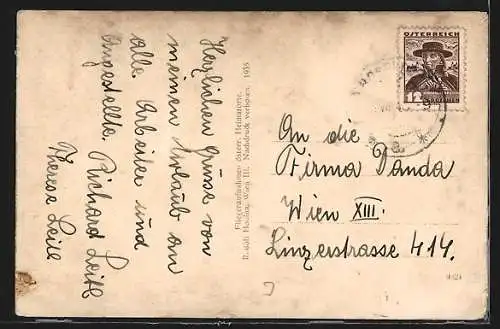 Herzlichen Grüsse von
meinen Urlaub an
alle Arbeiter und
Angestellte. Richard Leitl
Therese Leitl
Fliegeraufnahmen österr. Heimatorte.
Wien III. Nachdruck verboten. 1935
ÖSTERREICH
12
An die
Firma Panda
Wien XIII.
Linzerstrasse 414.